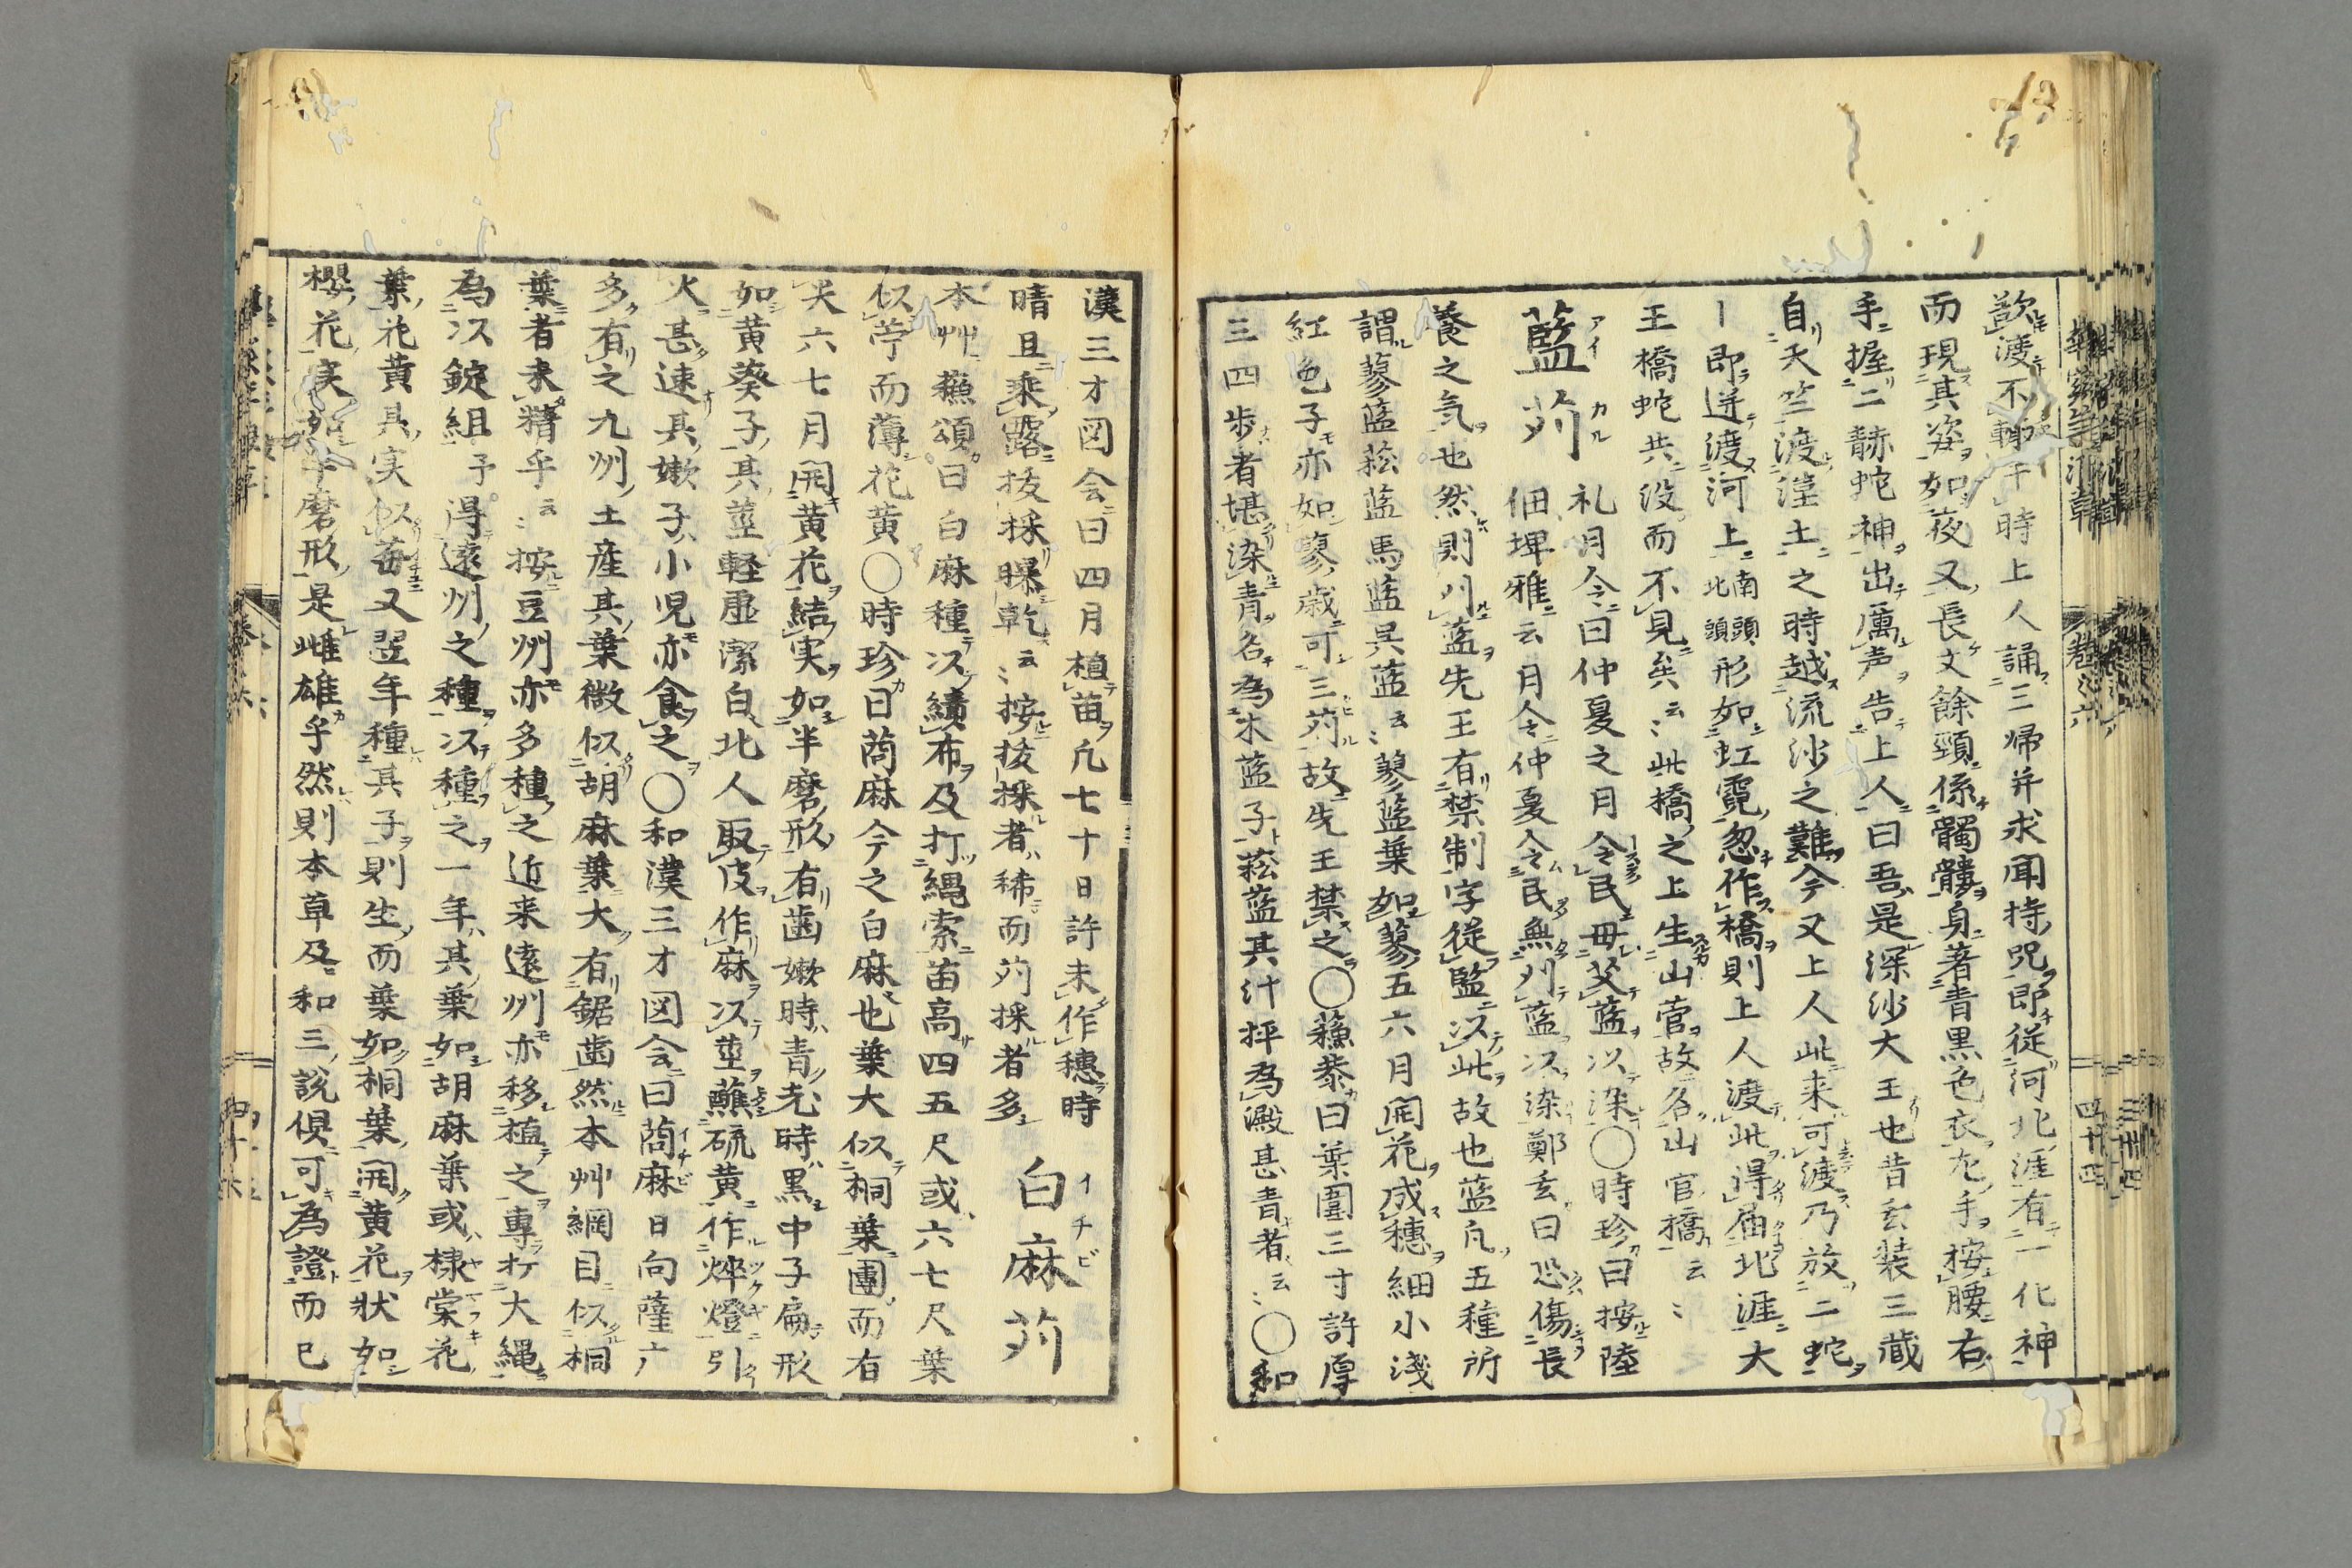 欲渡不輙于時上人誦三帰并求聞持咒即従河北涯有一化神
而現其姿如夜又長丈餘頸係髑髏身著青黒色衣左手按腰右
手握二赫蛇神出厲声告上人曰吾是深沙大王也昔玄装三蔵
自天竺渡漢土之時越流沙之難今又上人此来可渡乃放二蛇
即迸渡河上南頭北頭形如虹霓忽作橋則上人渡此得届北涯大
王橋蛇共没而不見矣云〻此橋之上生山菅故名山官橋云〻
藍苅 アイカル 礼月令曰仲夏之月令民毋艾藍以染〇時珍曰按陸
佃埤雅云月令仲夏令民無刈藍以染鄭玄曰恐傷長
養之気也然則刈藍先王有禁制字従監以此故也藍凡五種所
謂蓼藍菘藍馬藍呉藍云〻蓼藍葉如蓼五六月開花成穂細小淺
紅色子亦如蓼歳可三苅故先王禁之〇蘓恭曰葉圍三寸許厚
三四歩者堪染青名為木藍子菘藍其汁抨為澱甚青者云〻〇和
漢三才図会曰四月植苗凡七十日許未作穗時
晴且乘露抜採曝乾云〻按抜採者稀而苅採者多 白麻苅 イチビ
本艸蘓頌曰白麻種以績布及打縄索苗高四五尺或六七尺葉
似苧而薄花黄〇時珍曰䔛麻今之白麻也葉大似桐葉團而有
尖六七月開黄花結実如半磨形有歯嫩時青老時黒中子扁形
如黄葵子其莖軽虚潔白北人取皮作麻以莖蘸硫黄作焠燈引
火甚速其嫩子小児亦食之〇和漢三才図会曰䔛麻 イチビ 日向薩广
多有之九州土産其葉微似胡麻葉大有鋸歯然本艸綱目似桐
葉者未精乎云〻按豆州亦多種之近来遠州亦移植之專打大縄
為以錠組予得遠州之種以種之一年其葉如胡麻葉或棣棠花
葉花黄其実似苺又翌年種其子則生而葉如桐葉開黄花狀如
櫻花実如半磨形是雌雄乎然則本草及和三説倶可為證而已